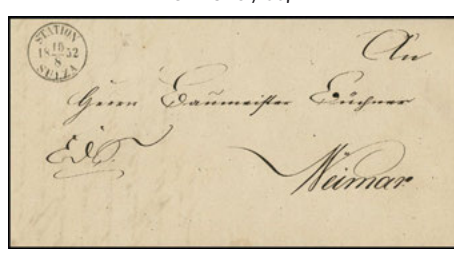 STATION
18 10/8 52
SULZA
An
Herrn Baumeister Büchner
EdS.
Weimar